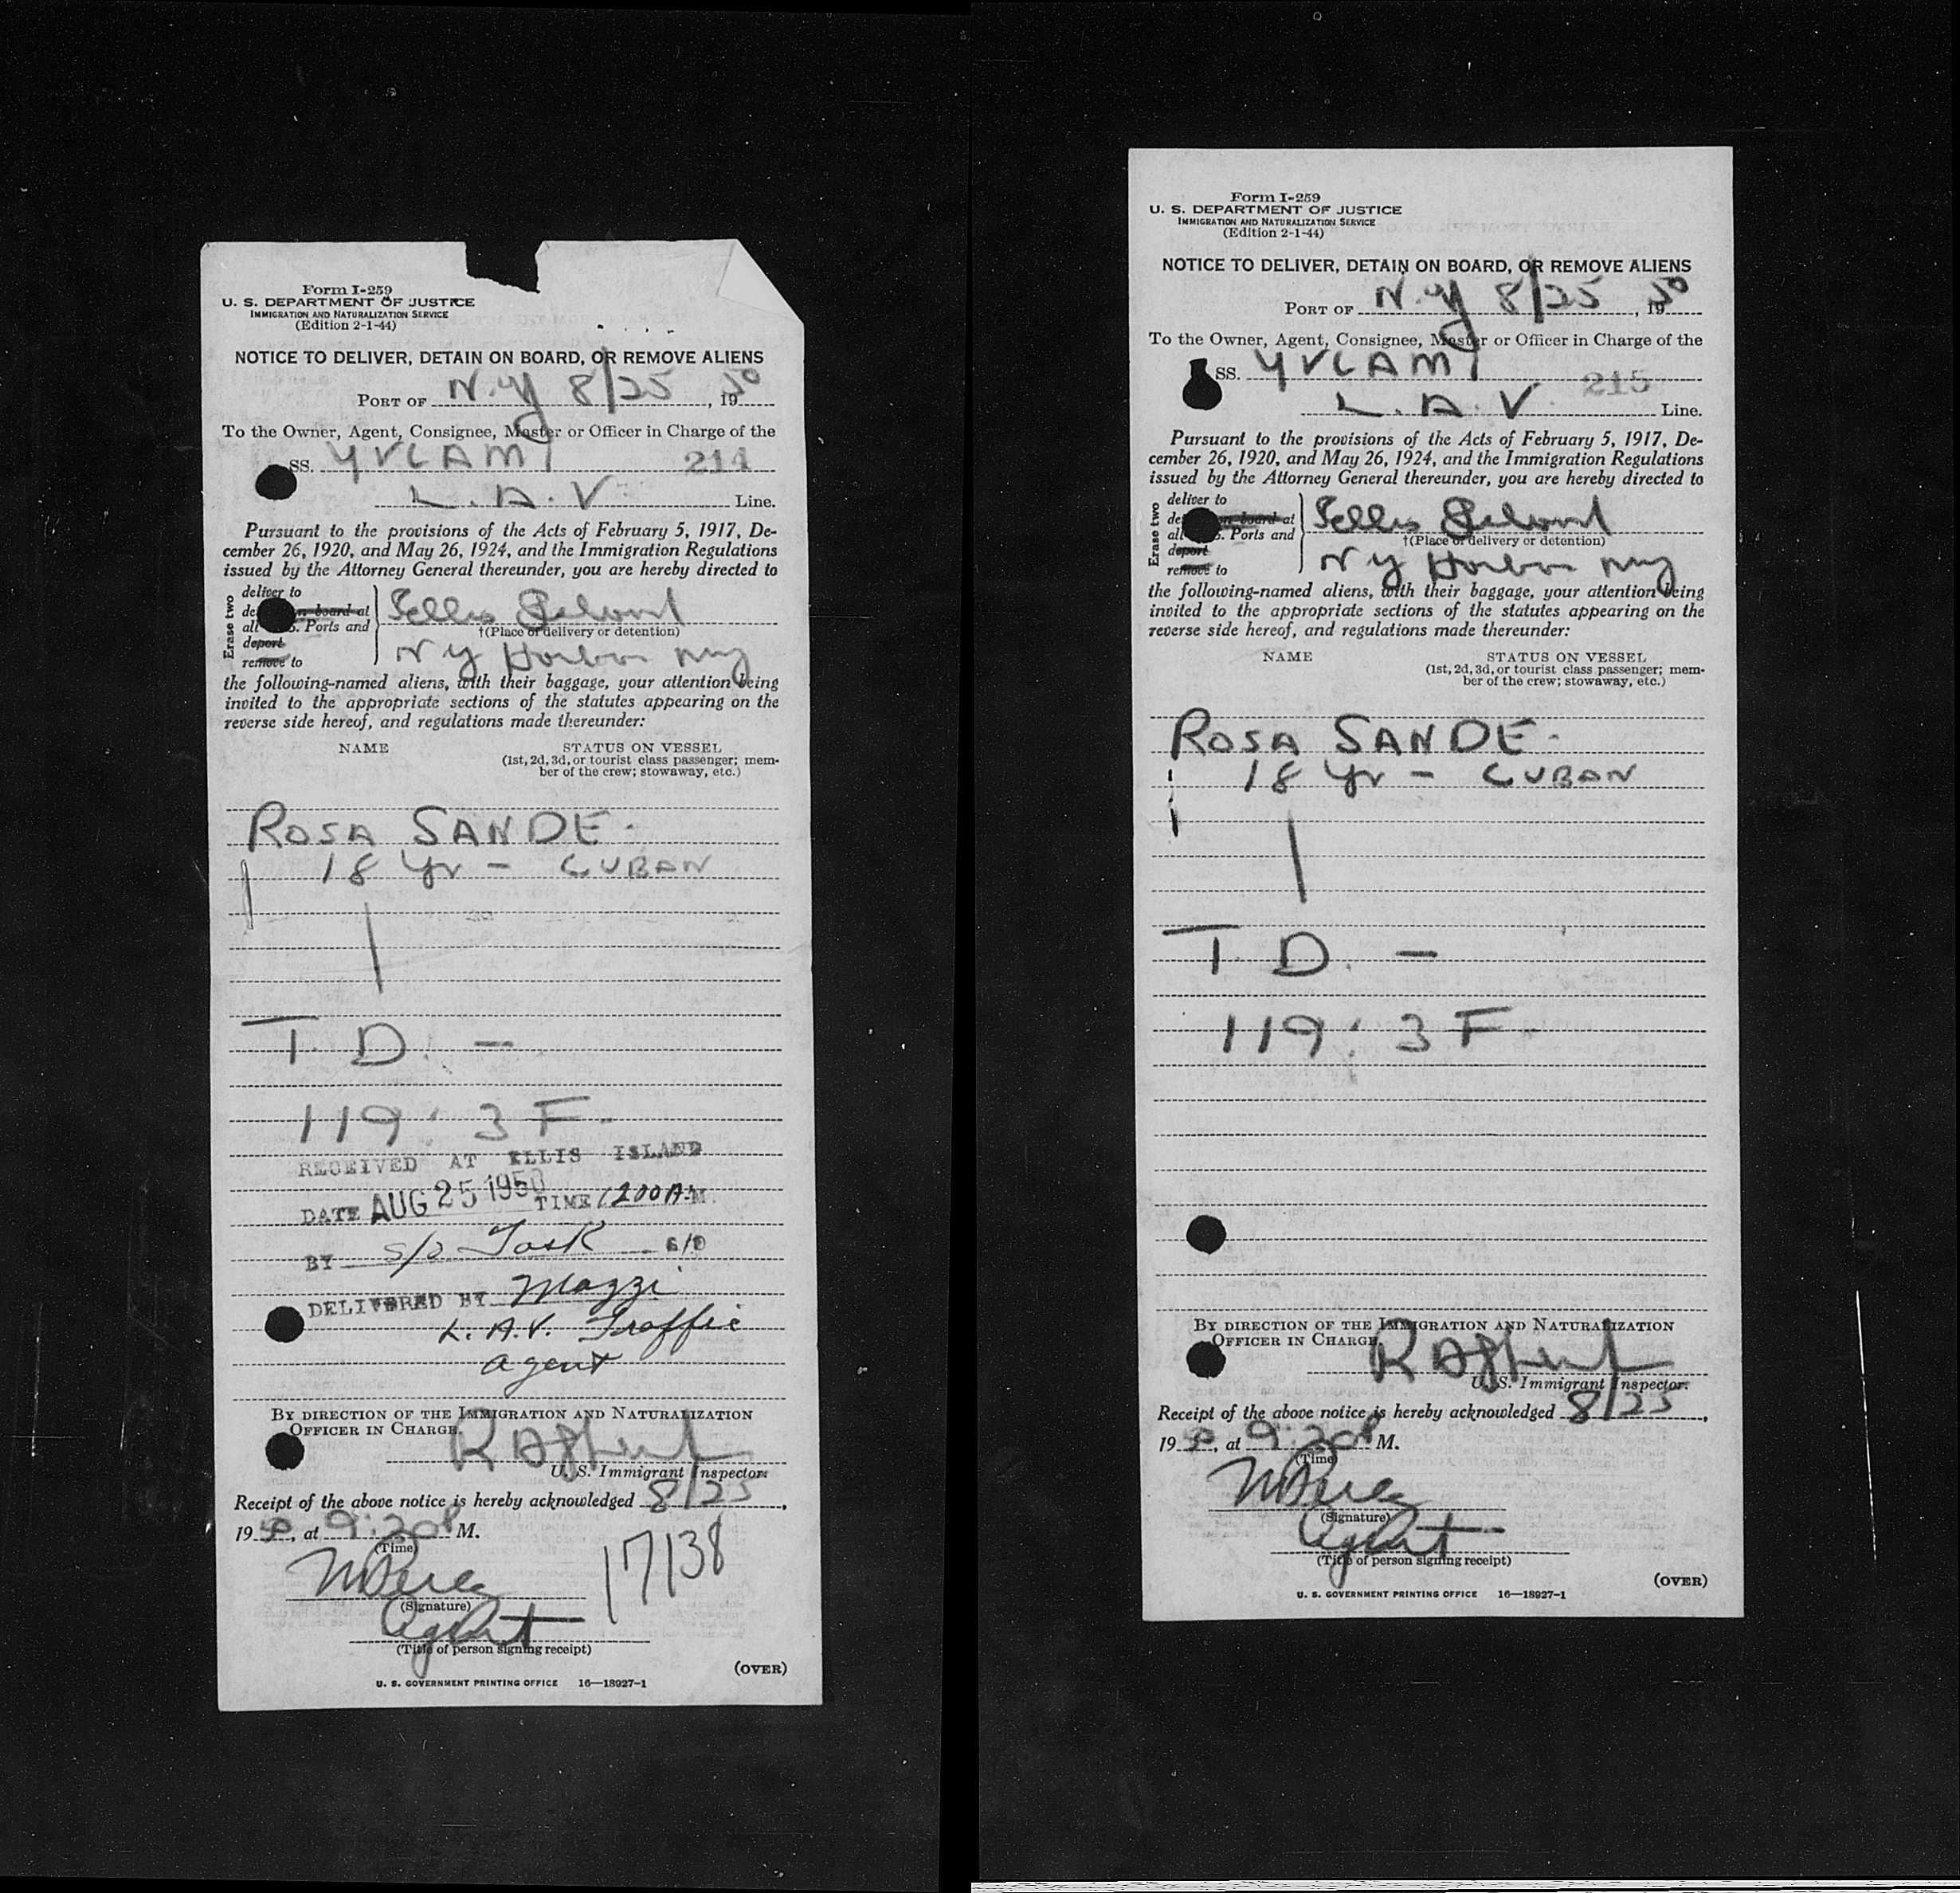 Form I-259
U. S. DEPARTMENT OF JUSTICE
IMMIGRATION AND NATURALIZATION SERVICE
(Edition 2-1-44)
NOTICE TO DELIVER, DETAIN ON BOARD, OR REMOVE ALIENS
PORT OF N.Y 8/25, 1950
To the Owner, Agent, Consignee, Master or Officer in Charge of the
SS. YVCAMY 214
L.A.V. Line.
Pursuant to the provisions of the Acts of February 5, 1917, De-
cember 26, 1920, and May 26, 1924, and the Immigration Regulations
issued by the Attorney General thereunder, you are hereby directed to
Erase two
deliver to
de n board at
all S. Ports and
deport
remove to
Ellis Island
†(Place of delivery or detention)
N Y Harbor NY
the following-named aliens, with their baggage, your attention being
invited to the appropriate sections of the statutes appearing on the
reverse side hereof, and regulations made thereunder:
NAME STATUS ON VESSEL
(1st, 2d, 3d, or tourist class passenger; mem-
ber of the crew; stowaway, etc.)
ROSA SANDE.
18 Yr - CUBAN
T. D. -
119: 3 F.
RECEIVED AT ELLIS ISLAND
DATE AUG 25 1950 TIME 1200 A.M.
BY S/O Task S/O
DELIVERED BY Mazzi
L.A.V. Traffic
agent
BY DIRECTION OF THE IMMIGRATION AND NATURALIZATION
OFFICER IN CHARGE.
U. S. Immigrant Inspector.
Receipt of the above notice is hereby acknowledged 8/25,
1950, at 9:20 P M.
(Time)
17138
(Signature)
Agent
(Title of person signing receipt)
(OVER)
U. S. GOVERNMENT PRINTING OFFICE 16—18927-1
Form I-259
U. S. DEPARTMENT OF JUSTICE
IMMIGRATION AND NATURALIZATION SERVICE
(Edition 2-1-44)
NOTICE TO DELIVER, DETAIN ON BOARD, OR REMOVE ALIENS
PORT OF N.Y 8/25, 1950
To the Owner, Agent, Consignee, Master or Officer in Charge of the
SS. YVCAMY 215
L.A.V. Line.
Pursuant to the provisions of the Acts of February 5, 1917, De-
cember 26, 1920, and May 26, 1924, and the Immigration Regulations
issued by the Attorney General thereunder, you are hereby directed to
Erase two
deliver to
de n board at
all S. Ports and
deport
remove to
Ellis Island
†(Place of delivery or detention)
N Y Harbor NY
the following-named aliens, with their baggage, your attention being
invited to the appropriate sections of the statutes appearing on the
reverse side hereof, and regulations made thereunder:
NAME STATUS ON VESSEL
(1st, 2d, 3d, or tourist class passenger; mem-
ber of the crew; stowaway, etc.)
ROSA SANDE.
18 Yr - CUBAN
T. D. -
119: 3 F.
BY DIRECTION OF THE IMMIGRATION AND NATURALIZATION
OFFICER IN CHARGE.
U. S. Immigrant Inspector.
Receipt of the above notice is hereby acknowledged 8/25,
1950, at 9:20 P M.
(Time)
(Signature)
Agent
(Title of person signing receipt)
(OVER)
U. S. GOVERNMENT PRINTING OFFICE 16—18927-1